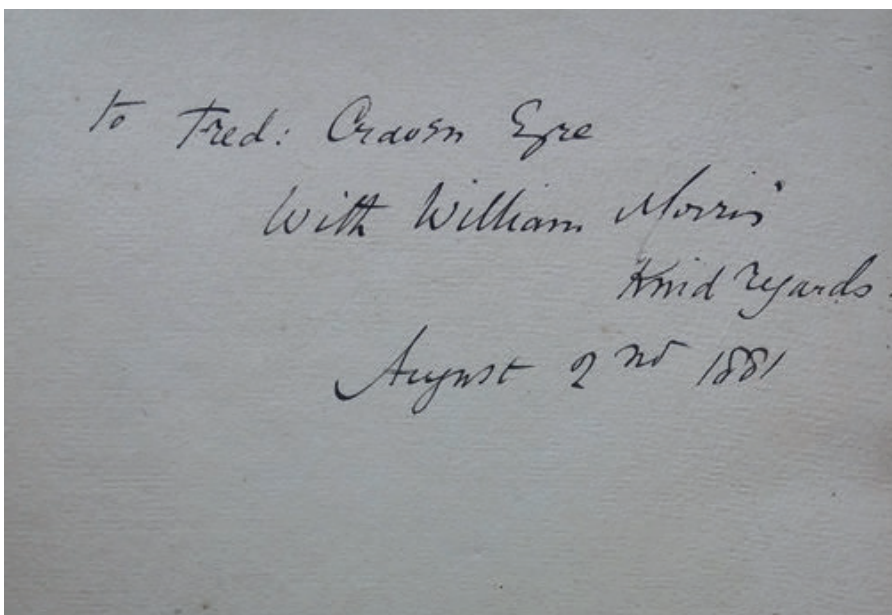 To Fred: Craven Eyre
With William Morris'
Kind regards.
August 2nd 1881